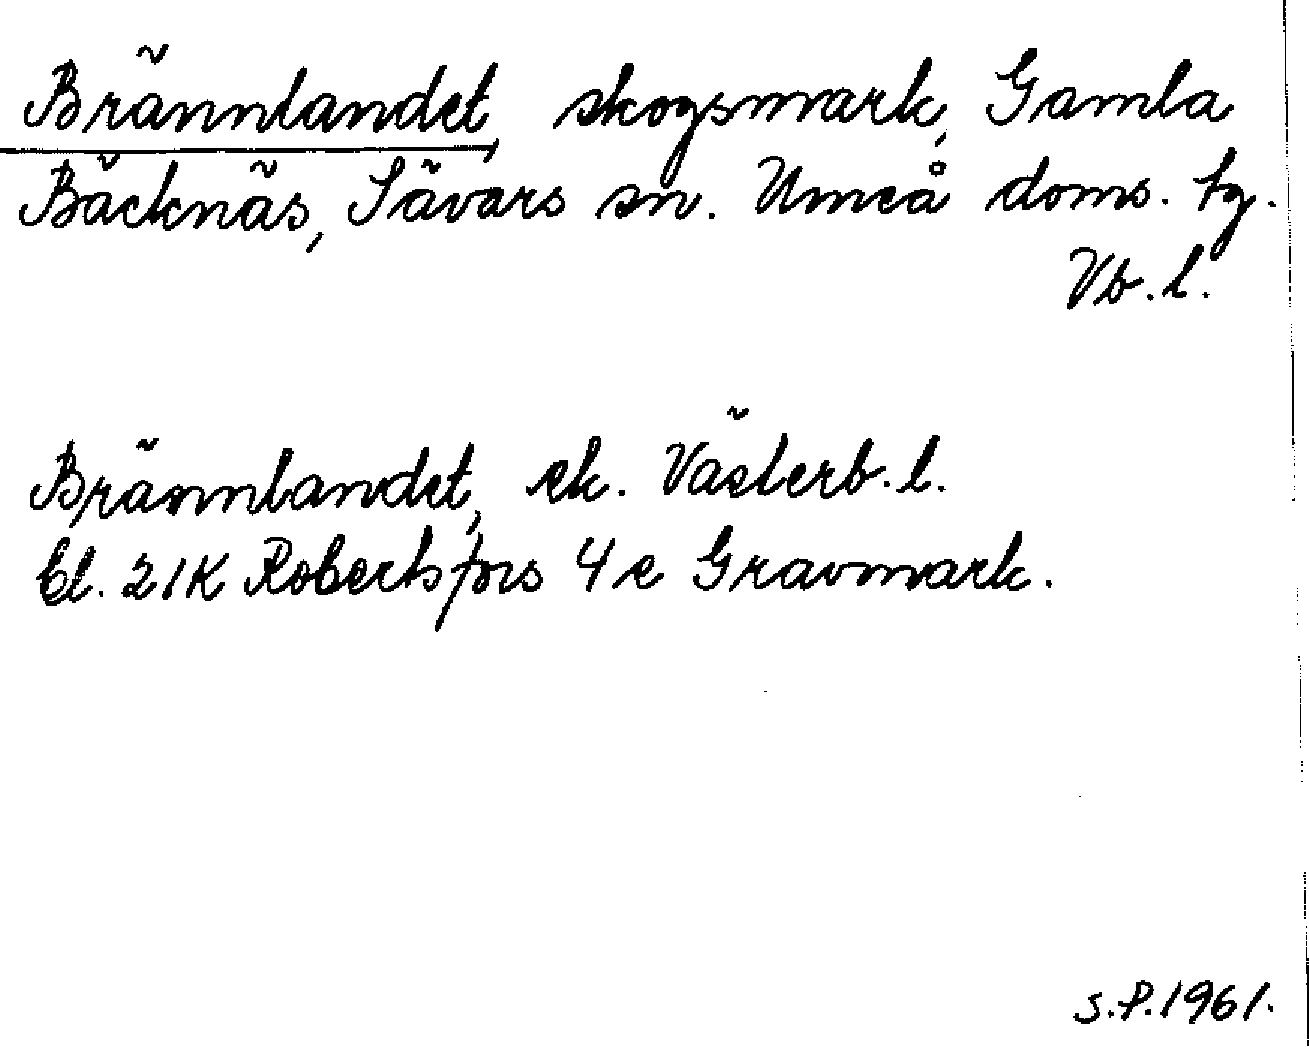 Brännlandet, skogsmark, Gamla
Bäcknäs, Sävars sn. Umeå doms. tg.
Vb. l.
Brännlandet, ek. Västerb. l.
bl. 21K Robertsfors 4e Gravmark.
S.P. 1961.